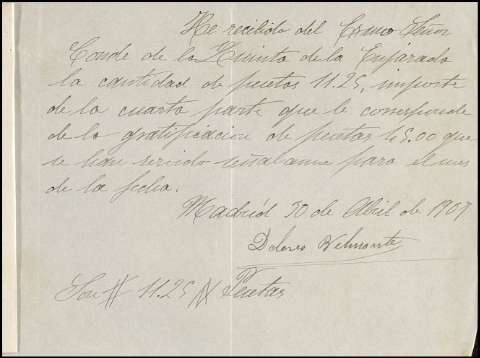 He recibido del Exmo Señor
Conde de la Quinta de la Enjarada
la cantidad de pesetas 11.25, importe
de la cuarta parte que le corresponde
de la gratificacion de pesetas 45.00 que
se han servido señalarme para el mes
de la fecha.
Madrid 30 de Abril de 1907
Dolores Belmonte
Son # 11.25 # Pesetas